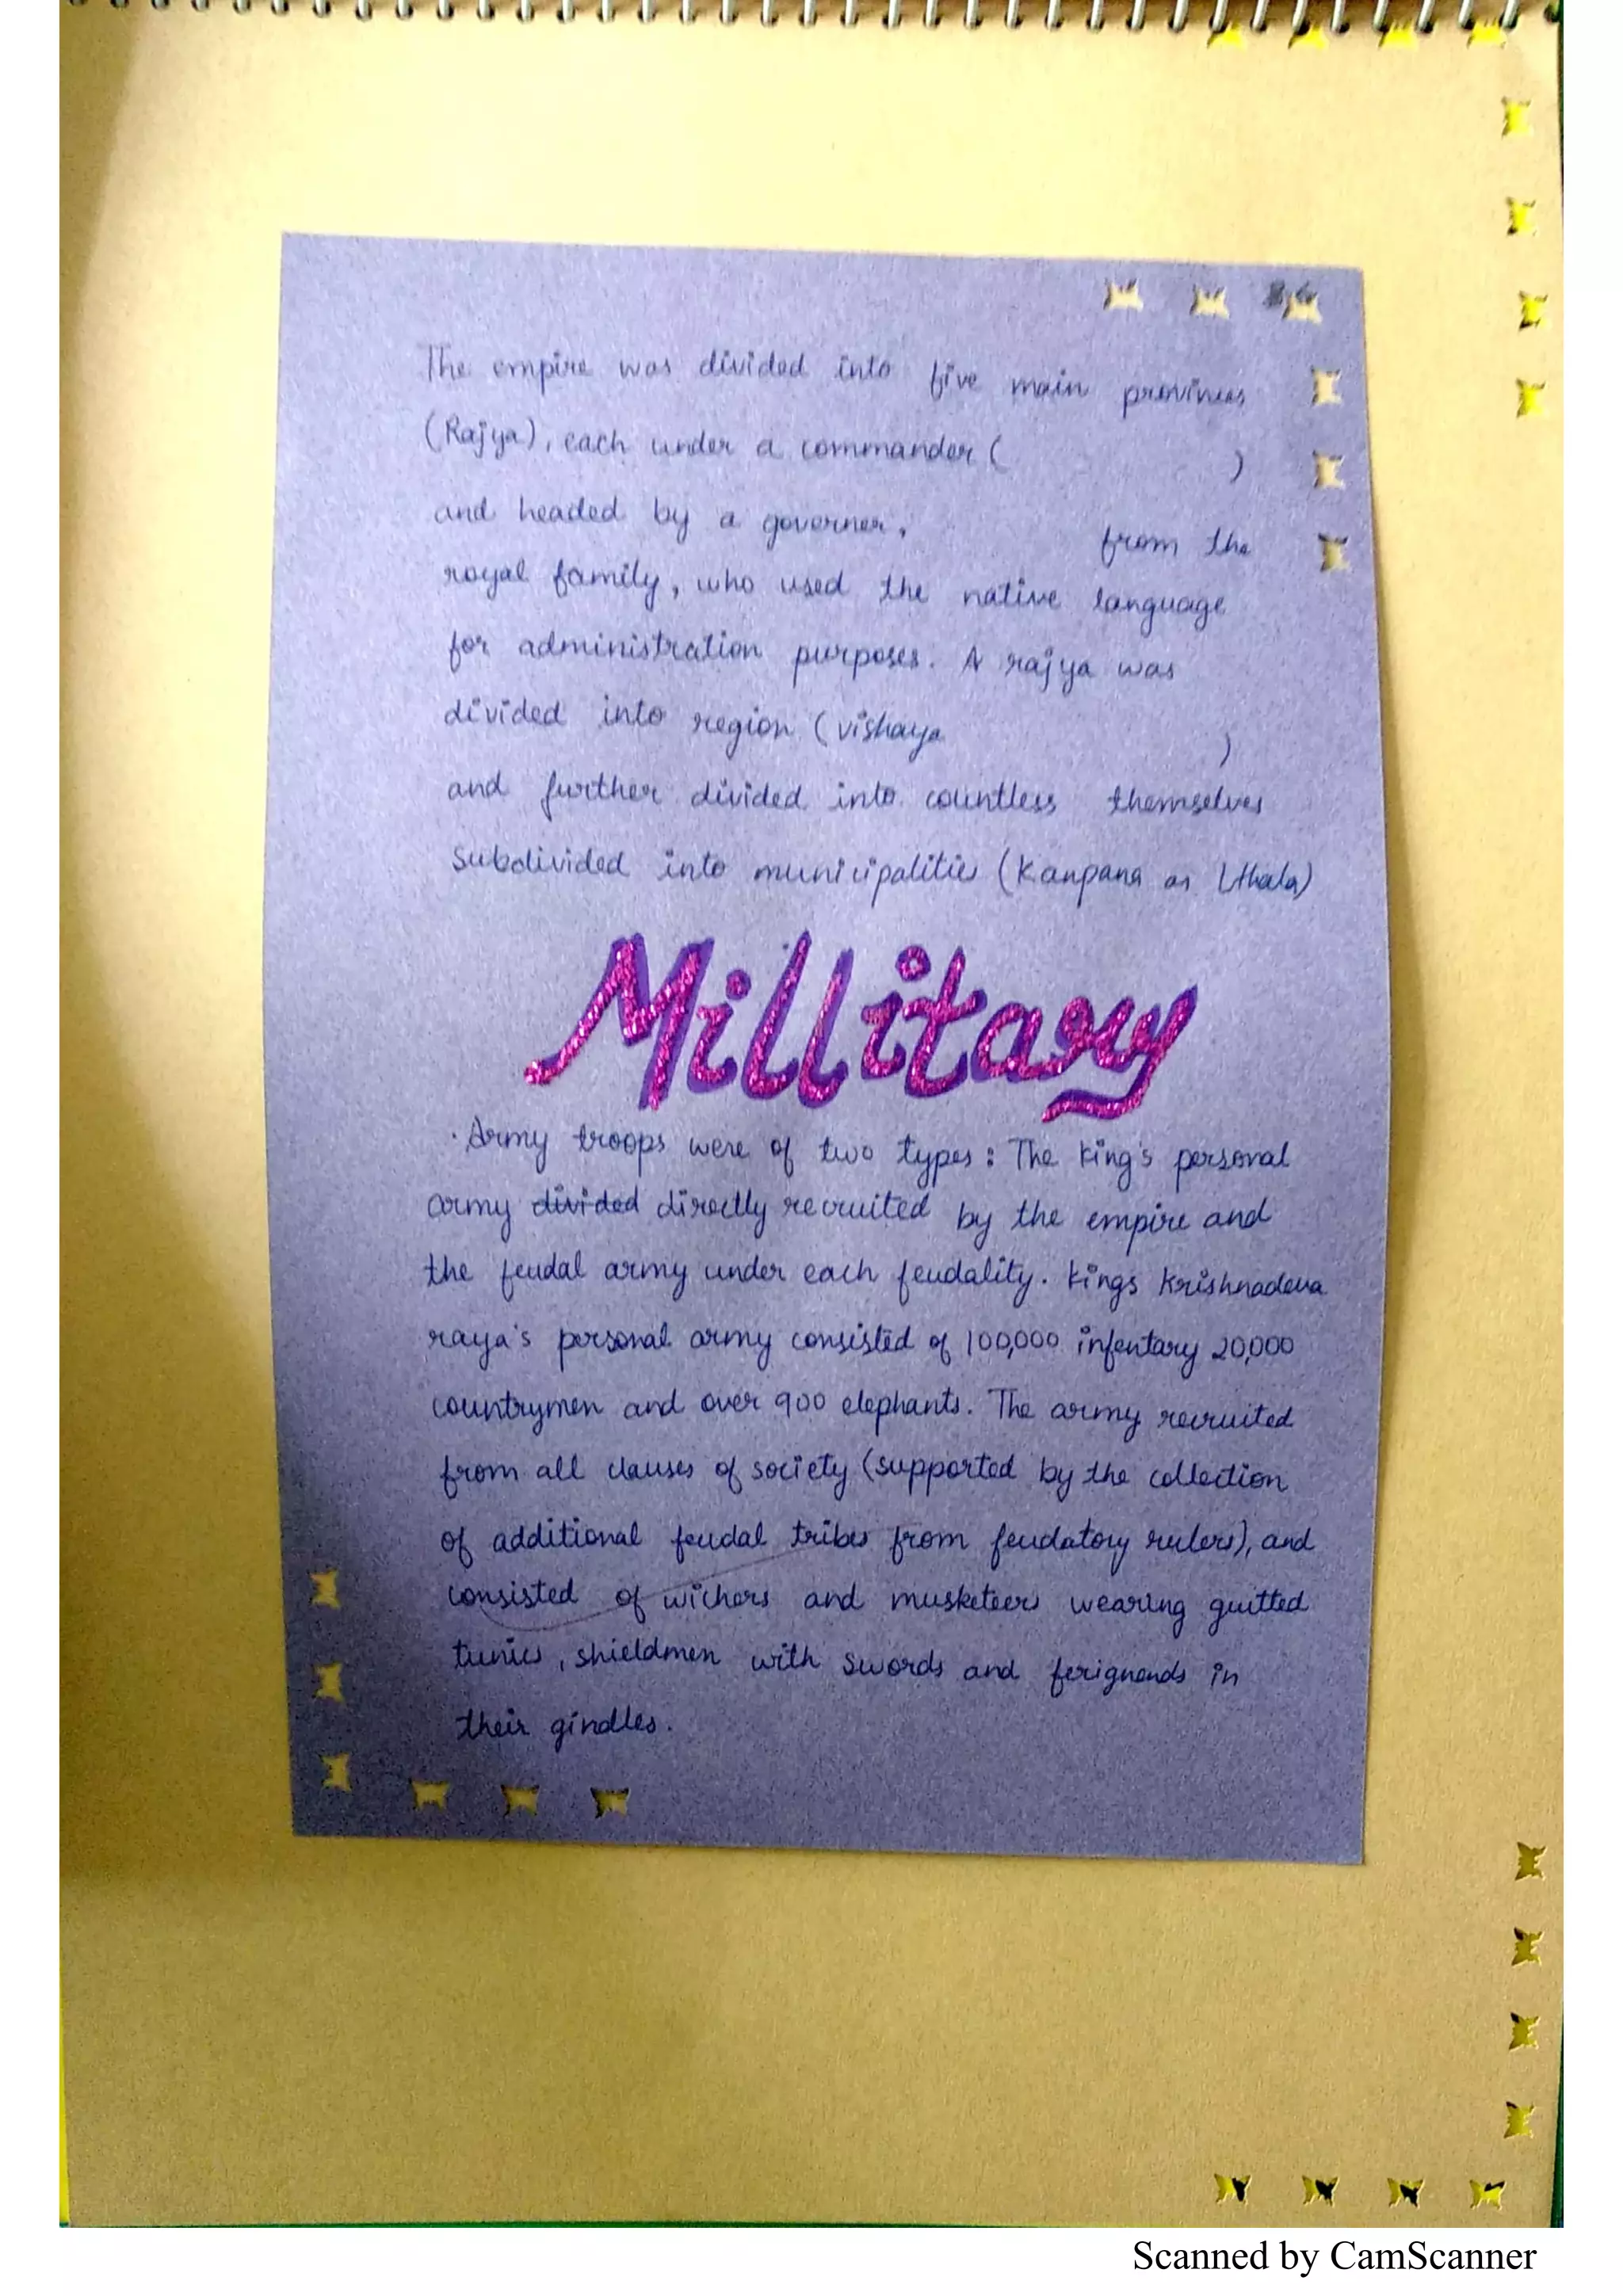 The empire was divided into five main provinces
(Rajya), each under a commander (                    )
and headed by a governer,                    from the
royal family, who used the native language
for administration purposes. A rajya was
divided into region (vishaya                    )
and further divided into countless themselves
subdivided into municipalities (Kanpana as Uthala)
Millitary
. Army troops were of two types : The King's personal
army divided directly recruited by the empire and
the feudal army under each feudality. Kings Krishnadeva
raya's personal army consisted of 100,000 infentary 20,000
countrymen and over 900 elephants. The army recruited
from all clauses of society (supported by the collection
of additional feudal tribes from feudatory rulers), and
consisted of wichers and musketeers wearing guitted
tunics, shieldmen with swords and ferignends in
their gindles.
Scanned by CamScanner